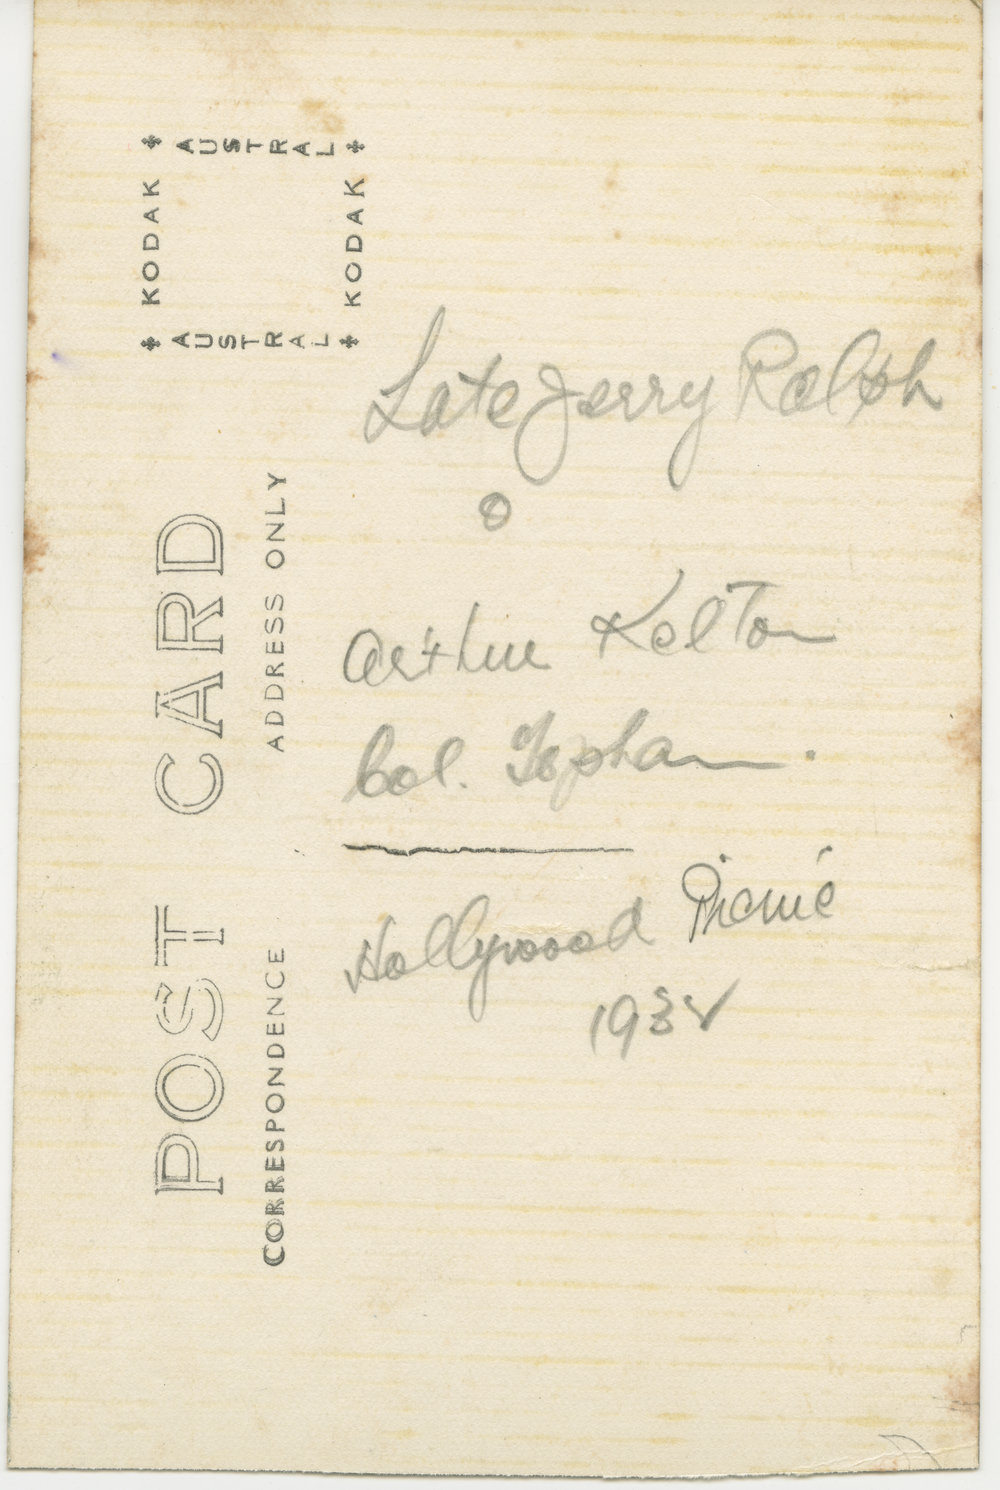 KODAK
AUSTRAL
KODAK
AUSTRAL
POST CARD
CORRESPONDENCE
ADDRESS ONLY
Late Jerry Ralph
Arthur Kelton
Col. Topham.
Hollywood Picnic
193